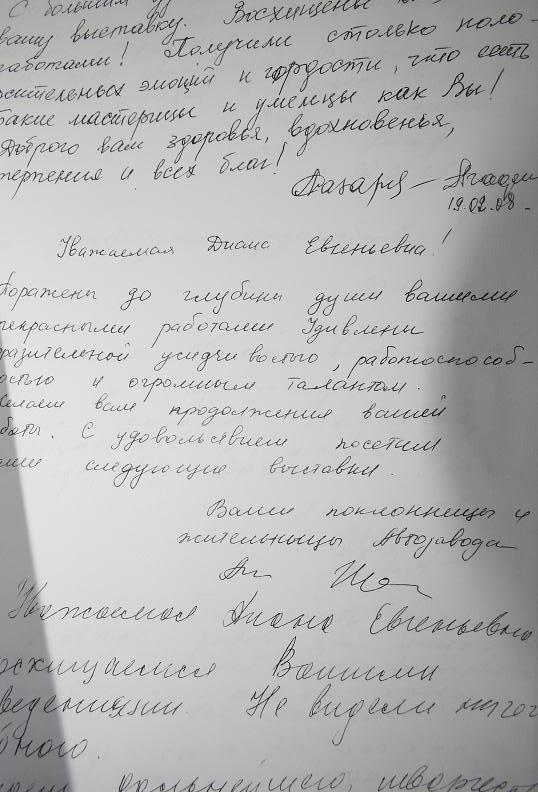 С большим
вашу выставку. Восхищены
работами! Получили столько поло-
жительных эмоций и гордости, что есть
такие мастерицы и умелицы как Вы!
Доброго вам здоровья, вдохновенья,
терпения и всех благ!
19.02.08
Уважаемая Диана Евгеньевна!
Поражены до глубины души вашими
прекрасными работами Удивлены
разительной усидчивостью, работоспособ-
остью и огромным талантом.
Желаем вам продолжения вашей
боты. С удовольствием посетим
следующие выставки.
Ваши поклонницы и
жительницы Автозавода
Уважаемая Диана Евгеньевна
осхищаемся Вашими
ведениями. Не видели ничег
бного.
дальнейшего творчест